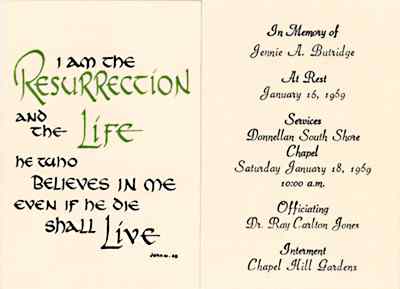 I AM THE
RESURRECTION
AND
THE LIFE
HE WHO
BELIEVES IN ME
EVEN IF HE DIE
SHALL LIVE
In Memory of
Jennie A. Butridge
At Rest
January 16, 1969
Services
Donnellan South Shore
Chapel
Saturday January 18, 1969
10:00 a.m.
Officiating
Dr. Ray Carlton Jones
Interment
Chapel Hill Gardens